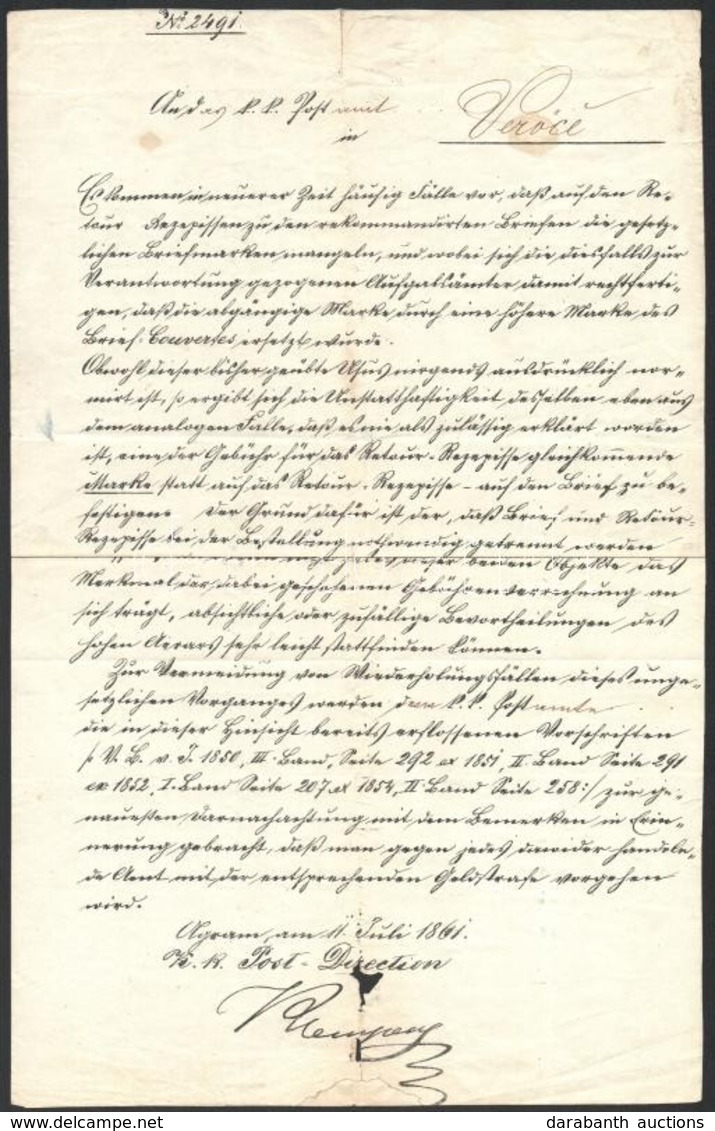 No 2491.
An das k. k. Postamt
in Verőce
Es kommen in neuerer Zeit häufig Fälle vor, daß auf den Re-
tour Rezepissen zu den rekommandirten Briefen die gesetz-
lichen Briefmarken mangeln, und wobei sich die diesfalls zur
Verantwortung gezogenen Aufgabsämter damit rechtferti-
gen, daß die abgängige Marke durch eine höhere Marke des
Brief-Couvertes ersetzt wurde.
Obwohl dieser bisher geübte Usus nirgends ausdrücklich nor-
mirt ist, so ergibt sich die Unstatthaftigkeit desselben eben aus
dem analogen Falle, daß es nie als zulässig erklärt worden
ist, eine der Gebühr für das Retour-Rezepisse gleichkommende
Marke statt auf das Retour-Rezepisse – auf den Brief zu be-
festigen. Der Grund dafür ist der, daß Brief und Retour-
Rezepisse bei der Bestellung nothwendig getrennt werden
beiden Objekte das
Merkmal der dabei geschehenen Gebührenverrechnung an
sich trägt, absichtliche oder zufällige Bevortheilungen des
hohen Aerars sehr leicht stattfinden können.
Zur Vermeidung von Wiederholungsfällen dieses unge-
setzlichen Vorganges werden dem k. k. Postamte
die in dieser Hinsicht bereits erflossenen Vorschriften
/: V. B. v. J. 1850, III. Band, Seite 292 ex 1851, II. Band Seite 291
ex 1852, I. Band Seite 207 ex 1854, II. Band Seite 258 :/ zur ge-
nauesten Darnachachtung mit dem Bemerken in Erin-
nerung gebracht, daß man gegen jedes dawider handeln-
de Amt mit der entsprechenden Geldstrafe vorgehen
wird.
Agram, am 11 Juli 1861.
K. k. Post-Direction
darabanth auctions